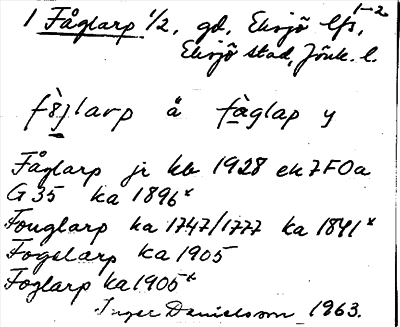 1 Fåglarp 1/2, gd, Eksjö lfs, 1-2
Eksjö stad, Jönk. l.
fò̤glarp å fàglap y
Fåglarp jr kb 1928 ek 7F0a
G 35 ka 1896x
Fouglarp ka 1747/1777 ka 1841x
Fogelarp ka 1905
Foglarp ka 1905x
Inger Danielsson 1963.